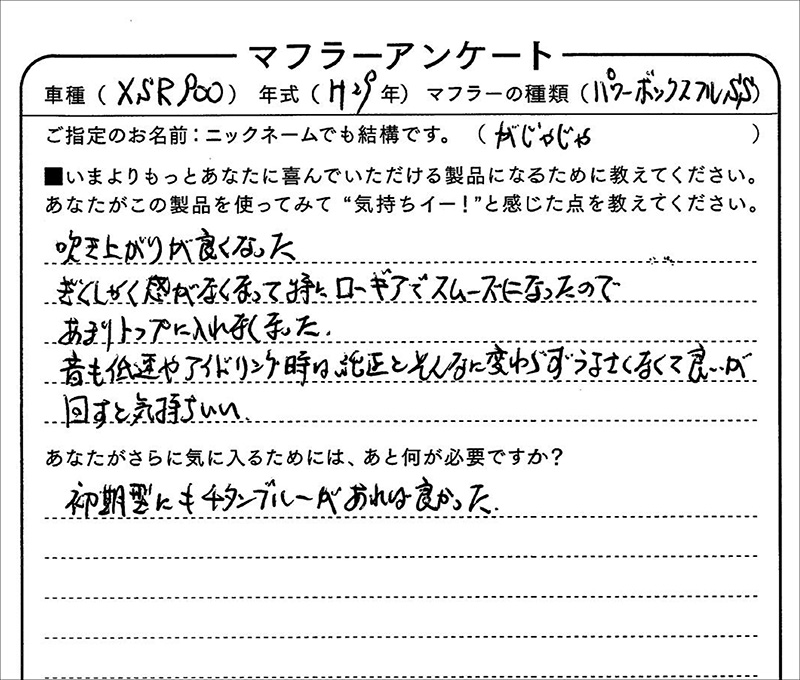 マフラーアンケート
車種(XSR900) 年式(H29年) マフラーの種類(パワーボックスフルSS)
ご指定のお名前:ニックネームでも結構です。(がじゃじゃ)
■いまよりもっとあなたに喜んでいただける製品になるために教えてください。
あなたがこの製品を使ってみて“気持ちイー!”と感じた点を教えてください。
吹き上がりが良くなった
ぎくしゃく感がなくなって特にローギアでスムーズになったので
あまりトップに入れなくなった.
音も低速やアイドリング時は純正とそんなに変わらずうるさくなくて良いが
回すと気持ちいい.
あなたがさらに気に入るためには、あと何が必要ですか?
初期型にもチタンブルーがあれば良かった.